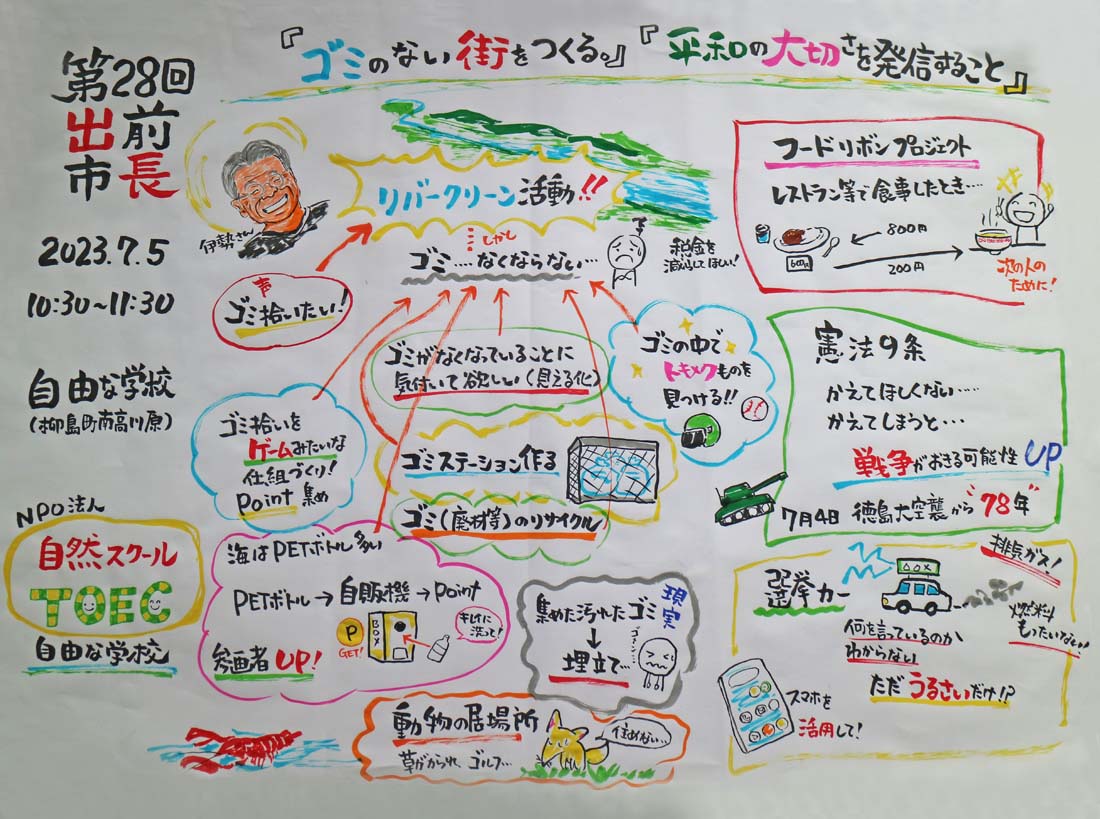 『ゴミのない街をつくる。』『平和の大切さを発信すること』
第28回
出前
市長
2023.7.5
10:30~11:30
自由な学校
(柳島町南高川原)
NPO法人
自然スクール
TOEC
自由な学校
伊勢さん
リバークリーン活動!!
しかし
ゴミ…なくならない…
税金を
減らしてほしい!
声
ゴミ拾いたい!
ゴミがなくなっていることに
気付いて欲しい(見える化)
ゴミの中で
トキメクものを
見つける!!
ゴミ拾いを
ゲームみたいな
仕組づくり!
Point集め
ゴミステーション作る
ゴミ(廃材等)のリサイクル
海はPETボトル多い
PETボトル→自販機→Point
P
GET!
BOX
キレイに
洗って!
参画者UP!
現実
集めた汚れたゴミ
↓
埋立て…
ゴメン…
動物の居場所
草がかられ、ゴルフ…
住めない…
フードリボンプロジェクト
レストラン等で食事したとき…
800円
600円
200円
次の人の
ために!
憲法9条
かえてほしくない……
かえてしまうと…
戦争がおきる可能性UP
7月4日 徳島大空襲から78年
選挙カー
排気ガス!
燃料
もったいない!
何を言っているのか
わからない
ただうるさいだけ!?
スマホを
活用して!